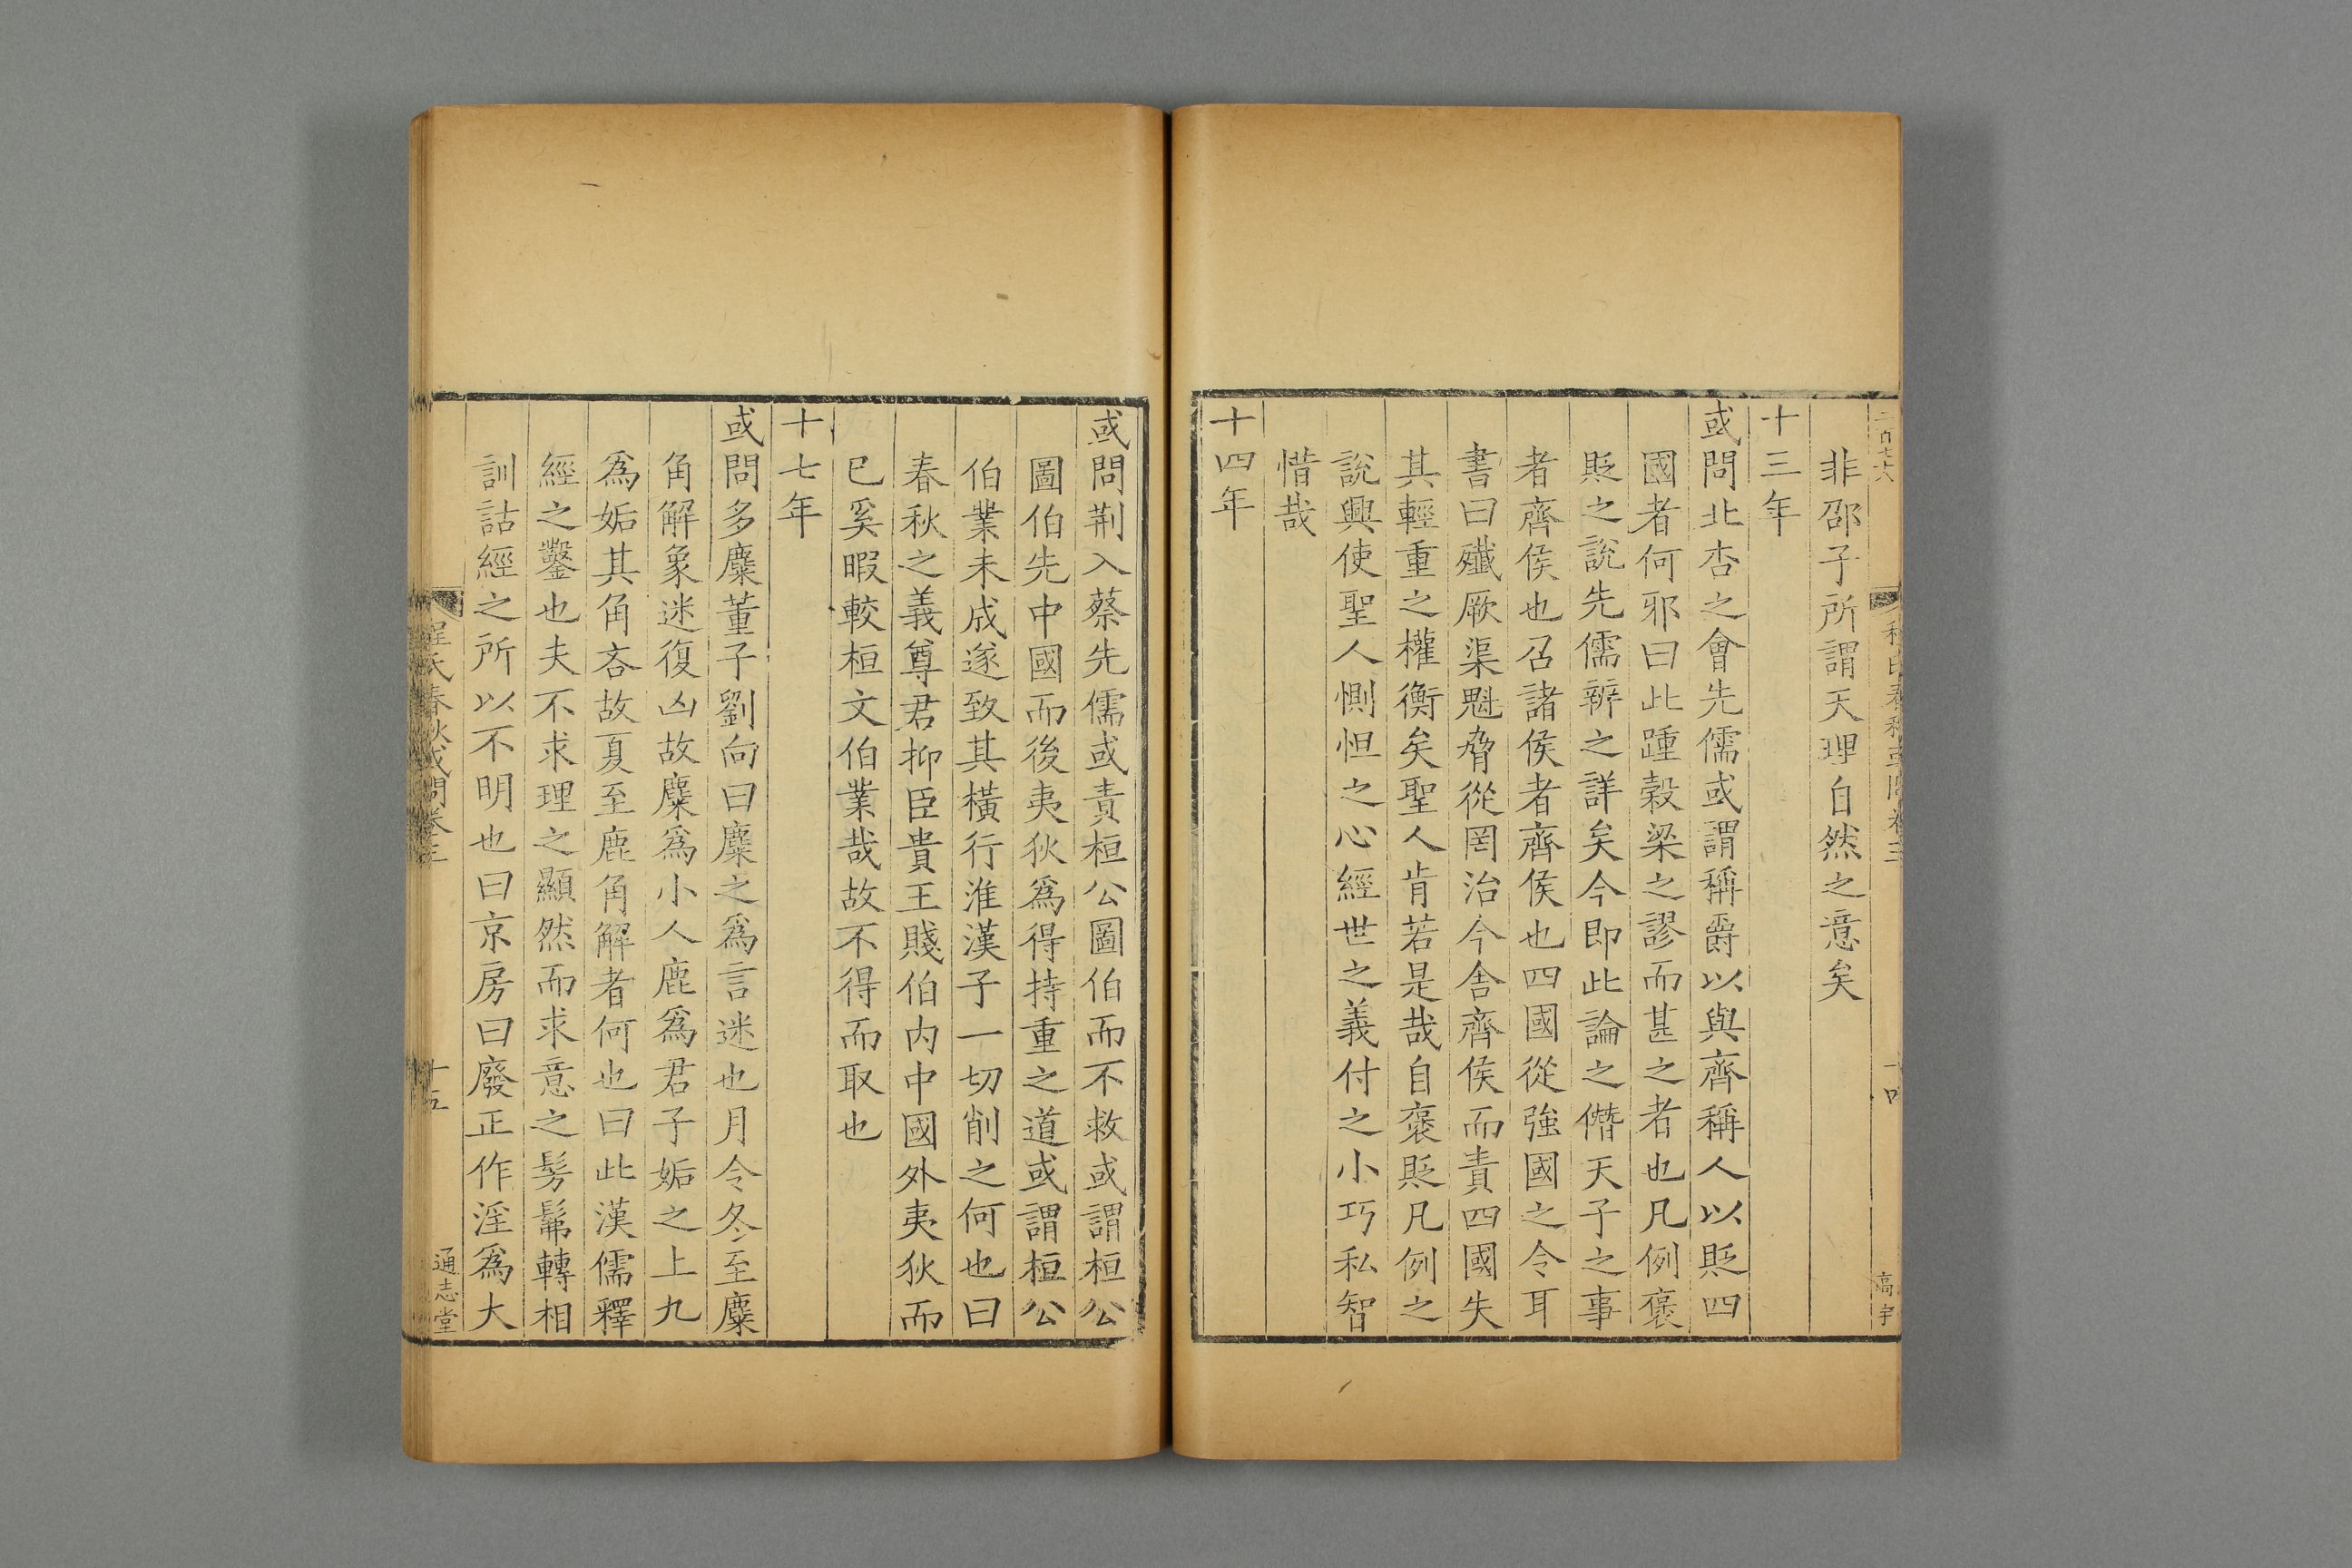 非邵子所謂天理自然之意矣
十三年
或問北杏之會先儒或謂稱爵以與齊稱人以貶四
國者何邪曰此踵穀梁之謬而甚之者也凡例褒
貶之說先儒辨之詳矣今即此論之僭天子之事
者齊侯也召諸侯者齊侯也四國從強國之令耳
書曰殲厥渠魁脅從罔治今舍齊侯而責四國失
其輕重之權衡矣聖人肯若是哉自褒貶凡例之
說興使聖人惻怛之心經世之義付之小巧私智
惜哉
十四年
或問荆入蔡先儒或責桓公圖伯而不救或謂桓公
圖伯先中國而後夷狄爲得持重之道或謂桓公
伯業未成遂致其橫行淮漢子一切削之何也曰
春秋之義尊君抑臣貴王賤伯内中國外夷狄而
已奚暇較桓文伯業哉故不得而取也
十七年
或問多麋董子劉向曰麋之爲言迷也月令冬至麋
角解象迷復凶故麋爲小人鹿爲君子姤之上九
爲姤其角吝故夏至鹿角解者何也曰此漢儒釋
經之鑿也夫不求理之顯然而求意之髣髴轉相
訓詁經之所以不明也曰京房曰廢正作淫爲大
程氏春秋或問卷三
十五
通志堂